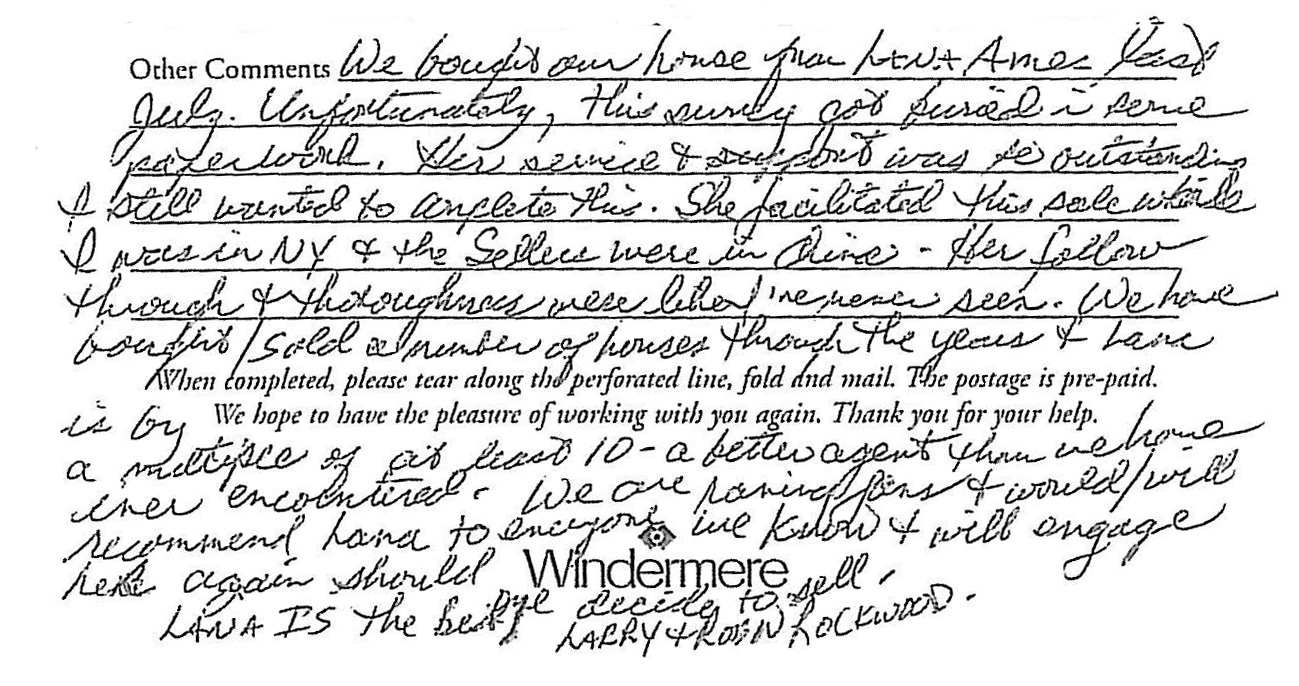 Other Comments We bought our house from LANA Ames last
July. Unfortunately, this survey got buried in some
paperwork. Her service & support was so outstanding
I still wanted to complete this. She facilitated this sale while
I was in NY & the Sellers were in China - Her follow
through & thoroughness were like I've never seen. We have
bought/sold a number of houses through the years & Lana
When completed, please tear along the perforated line, fold and mail. The postage is pre-paid.
We hope to have the pleasure of working with you again. Thank you for your help.
is by
a multiple of at least 10 - a better agent than we have
ever encountered. We are raving fans & would/will
recommend Lana to everyone we know & will engage
here again should
Windermere
we decide to sell.
LANA IS the best
LARRY & ROBIN LOCKWOOD.